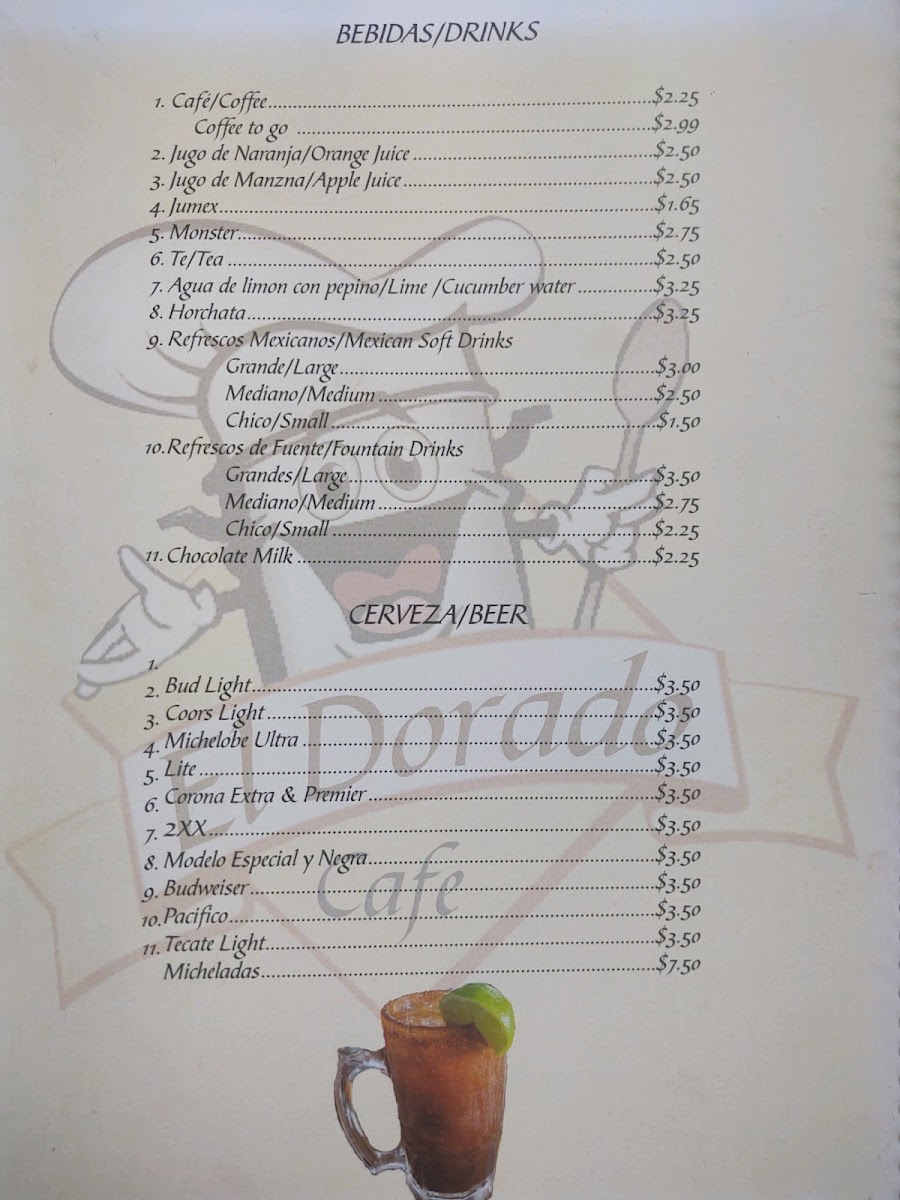 BEBIDAS/DRINKS
1. Café/Coffee....................$2.25
Coffee to go ....................$2.99
2. Jugo de Naranja/Orange Juice ....................$2.50
3. Jugo de Manzna/Apple Juice....................$2.50
4. Jumex....................$1.65
5. Monster....................$2.75
6. Te/Tea ....................$2.50
7. Agua de limon con pepino/Lime /Cucumber water ....................$3.25
8. Horchata....................$3.25
9. Refrescos Mexicanos/Mexican Soft Drinks
Grande/Large....................$3.00
Mediano/Medium ....................$2.50
Chico/Small ....................$1.50
10. Refrescos de Fuente/Fountain Drinks
Grandes/Large....................$3.50
Mediano/Medium ....................$2.75
Chico/Small ....................$2.25
11. Chocolate Milk ....................$2.25
CERVEZA/BEER
1.
2. Bud Light....................$3.50
3. Coors Light ....................$3.50
4. Michelobe Ultra ....................$3.50
5. Lite ....................$3.50
6. Corona Extra & Premier....................$3.50
7. 2XX....................$3.50
8. Modelo Especial y Negra....................$3.50
9. Budweiser....................$3.50
10. Pacifico....................$3.50
11. Tecate Light....................$3.50
Micheladas....................$7.50
El Dorado
Cafe